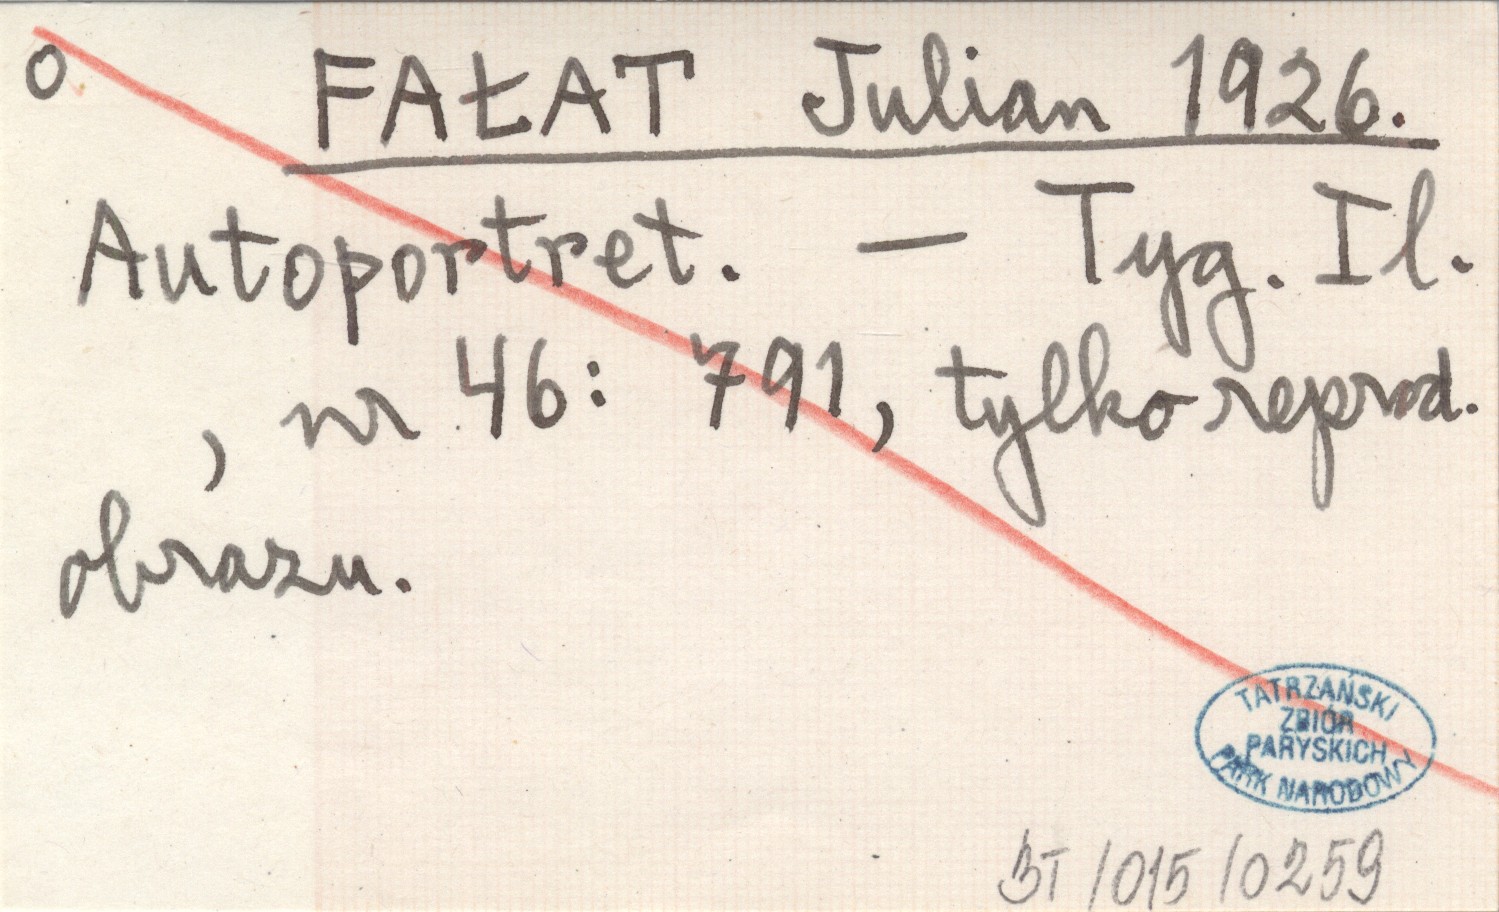 o FAŁAT Julian 1926.
Autoportret. — Tyg. Il.
, nr 46: 791, tylko reprod.
obrazu.
TATRZAŃSKI
ZBIÓR
PARYSKICH
PARK NARODOWY
BT/015/0259